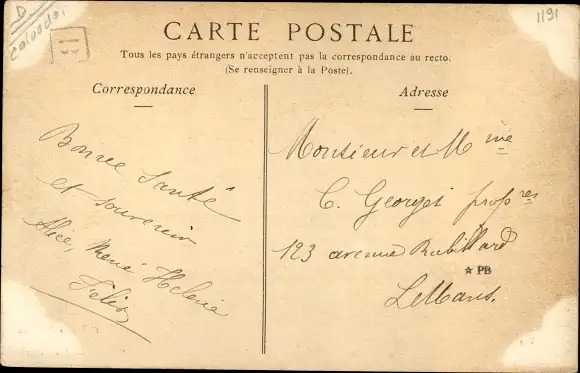 D
Calvados
1191
CARTE POSTALE
Tous les pays étrangers n'acceptent pas la correspondance au recto.
(Se renseigner à la Poste).
Correspondance
Adresse
Bonne Santé
et souvenir
Alice, René Helene
Félix
Monsieur et Mme
C. Georget propres
123 avenue Rubillard
★ PB
Le Mans.